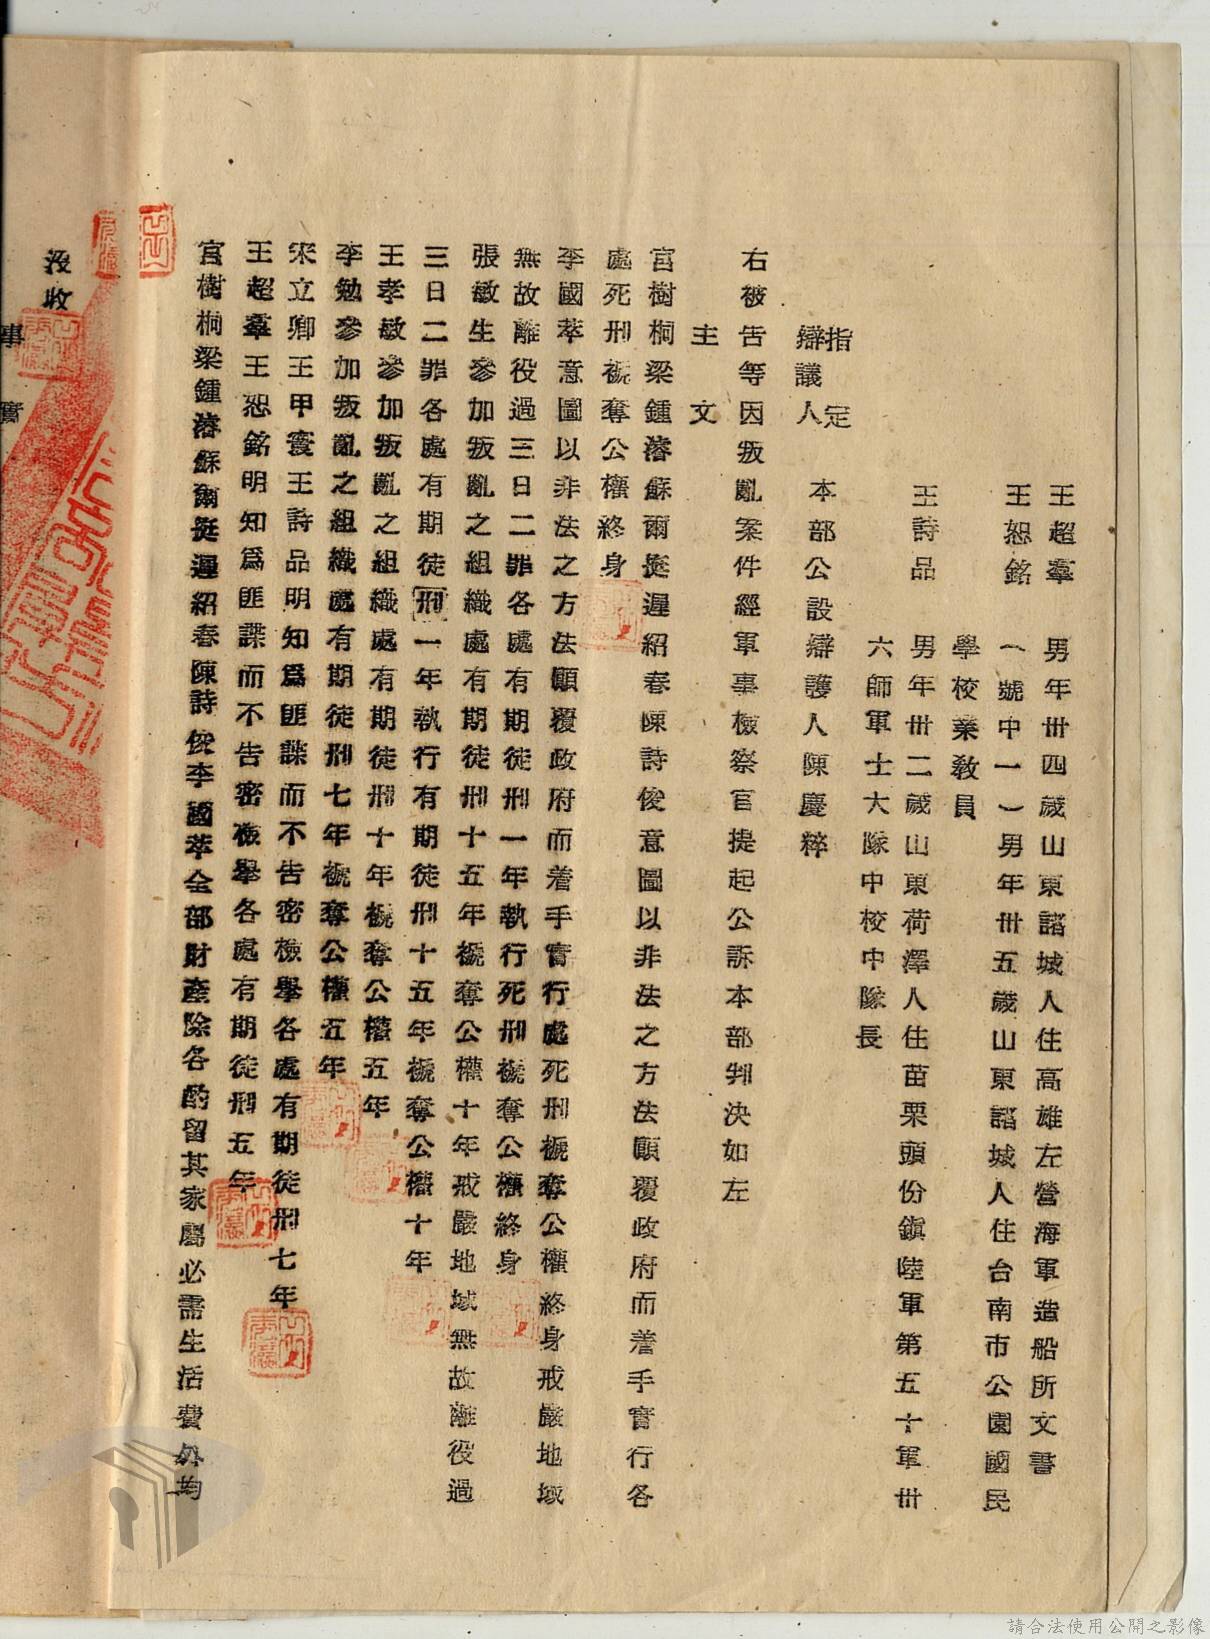 王超羣　男年卅四歲山東諸城人住高雄左營海軍造船所文書
王恕銘　（號中一）男年卅五歲山東諸城人住台南市公園國民
學校業教員
王詩品　男年卅二歲山東荷澤人住苗栗頭份鎮陸軍第五十軍卅
六師軍士大隊中校中隊長
指定
辯議人　本部公設辯護人陳慶粹
右被告等因叛亂案件經軍事檢察官提起公訴本部判決如左
主　文
宮樹桐梁鍾濬蘇爾挺遲紹春陳詩俊意圖以非法之方法顚覆政府而着手實行各
處死刑褫奪公權終身
李國萃意圖以非法之方法顚覆政府而着手實行處死刑褫奪公權終身戒嚴地域
無故離役過三日二罪各處有期徒刑一年執行死刑褫奪公權終身
張敏生參加叛亂之組織處有期徒刑十五年褫奪公權十年戒嚴地域無故離役過
三日二罪各處有期徒刑一年執行有期徒刑十五年褫奪公權十年
王孝敏參加叛亂之組織處有期徒刑十年褫奪公權五年
李勉參加叛亂之組織處有期徒刑七年褫奪公權五年
宋立卿王甲寰王詩品明知爲匪諜而不告密檢舉各處有期徒刑七年
王超羣王恕銘明知爲匪諜而不告密檢舉各處有期徒刑五年
宮樹桐梁鍾濬蘇爾挺遲紹春陳詩俊李國萃全部財產除各酌留其家屬必需生活費外均
沒收
事　實
請合法使用公開之影像